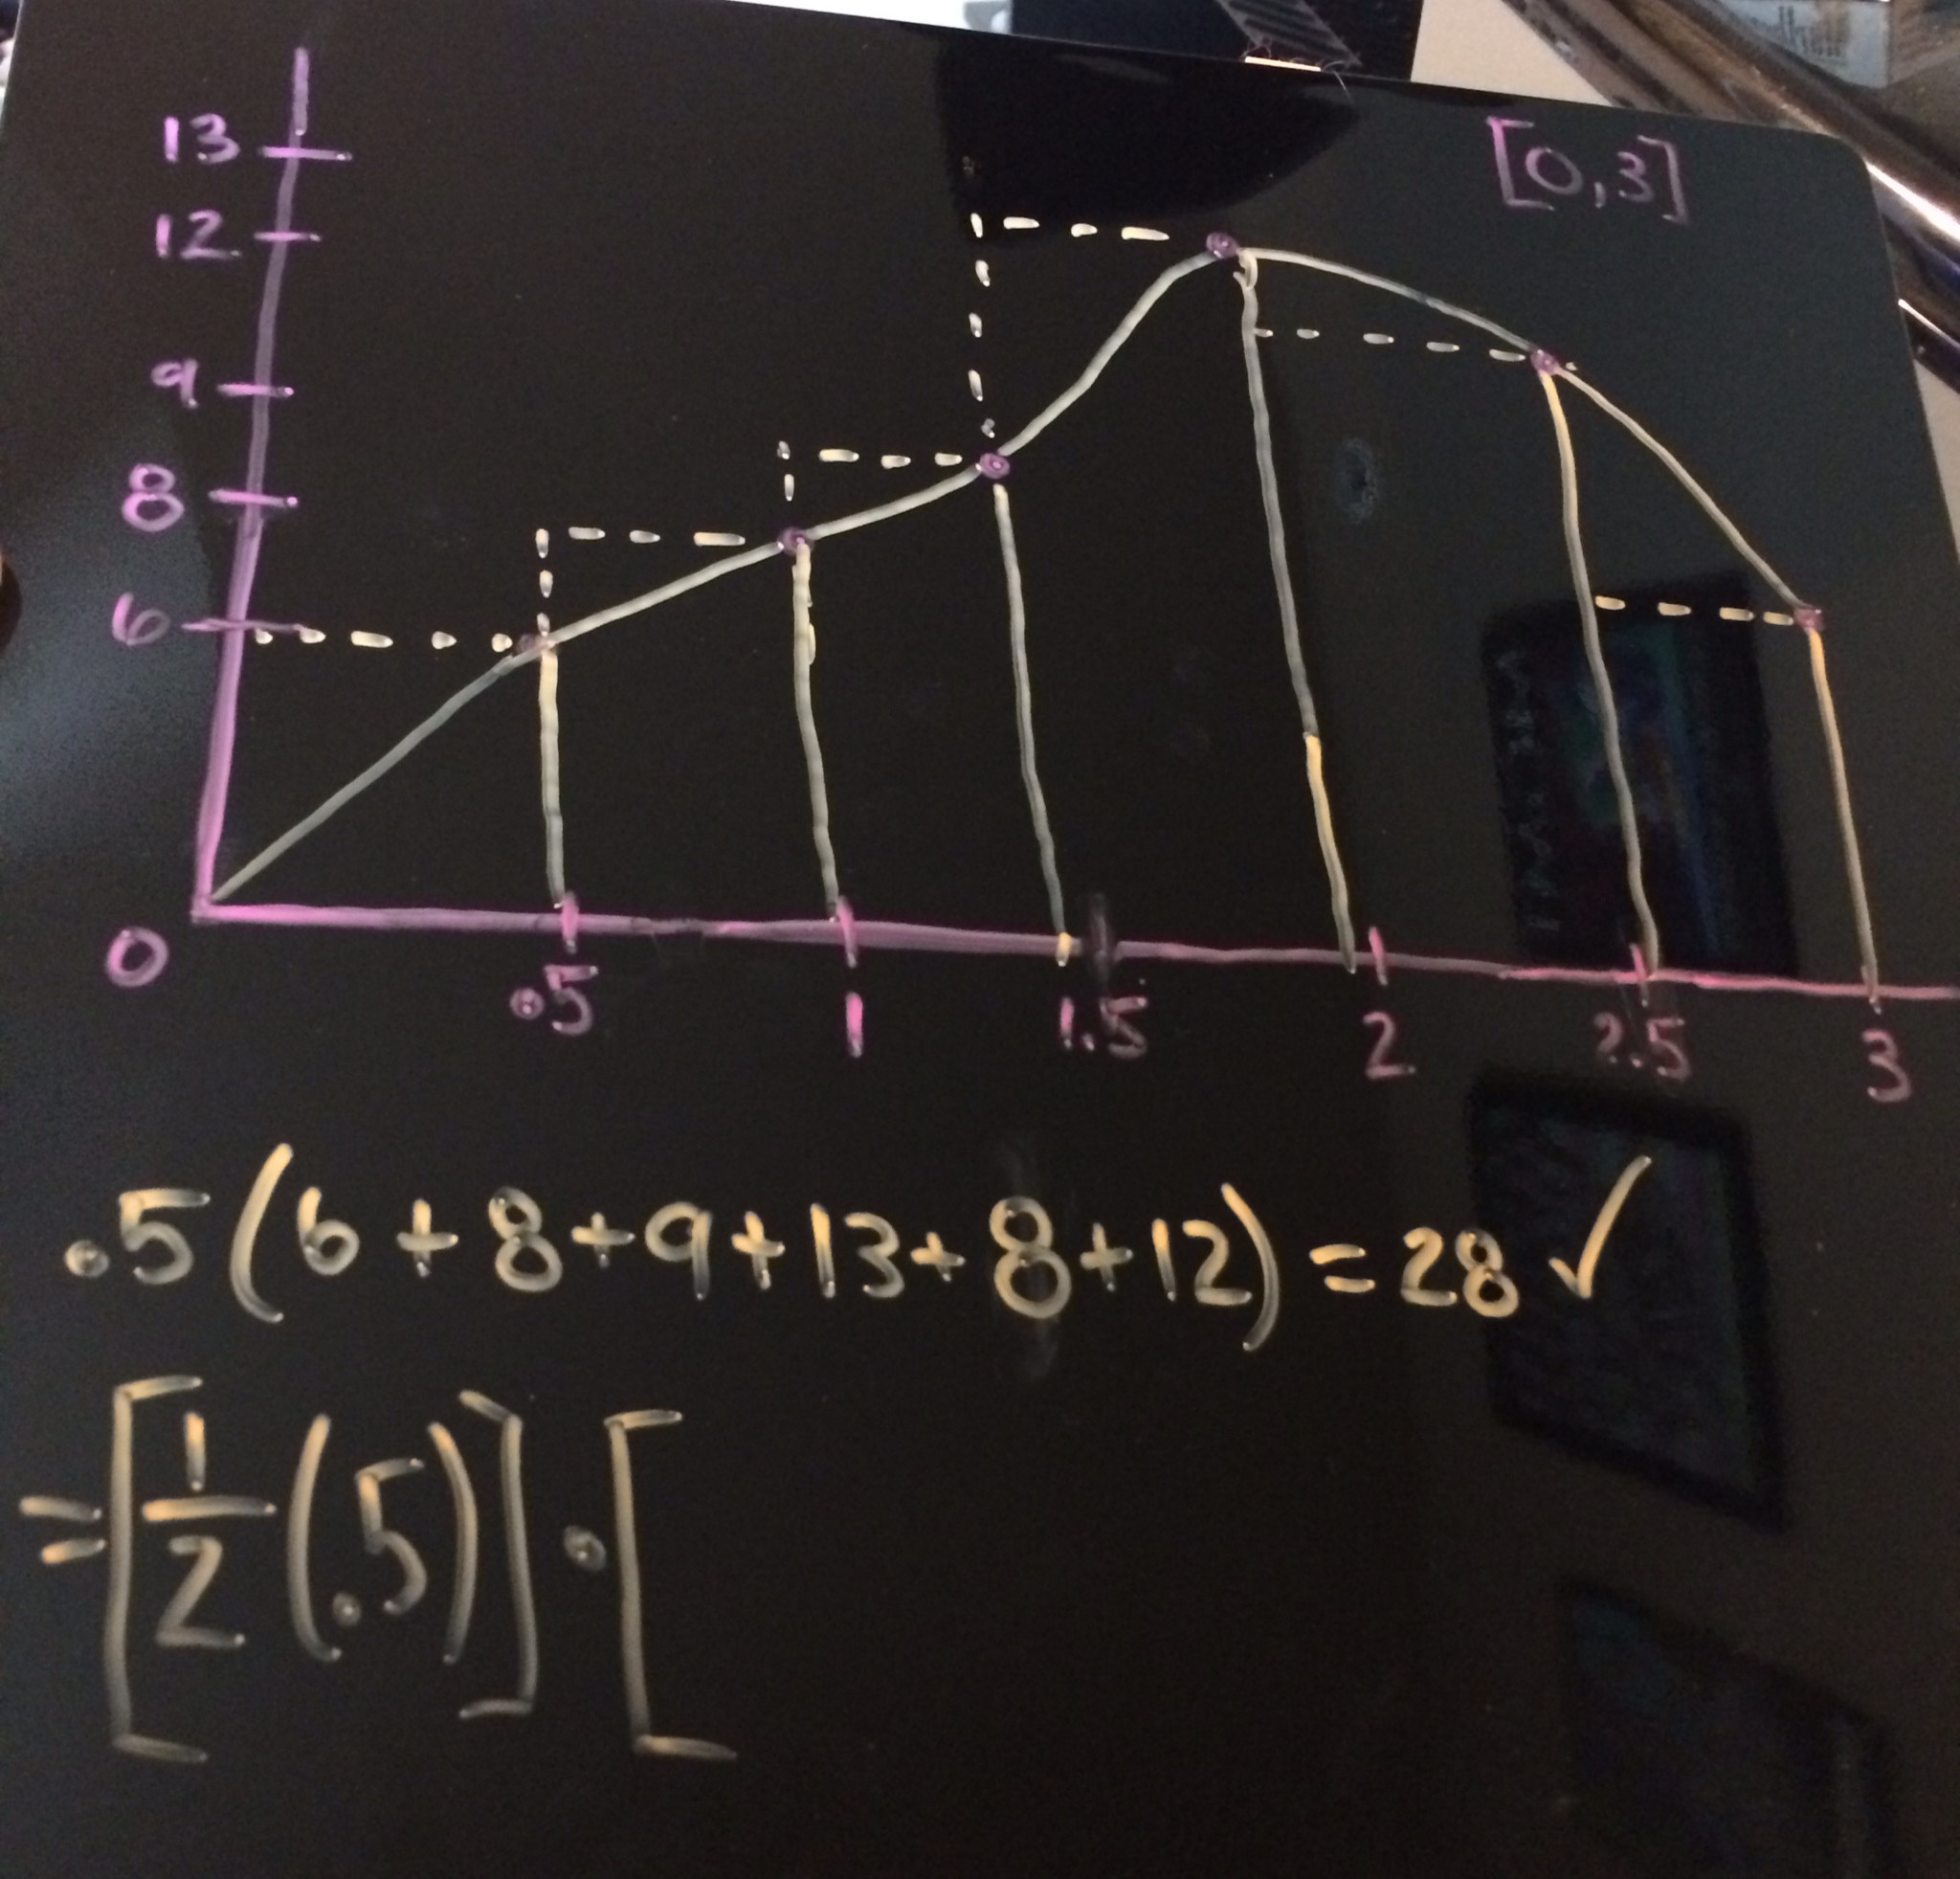 13
[0,3]
12
9
8
6
0
.5 1 1.5 2 2.5 3
.5(6+8+9+13+8+12)=28 ✓
=[1/2(.5)]·[